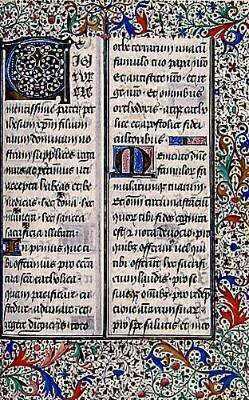 T E
IGI
TVR
CLE
mentissime pater per
ihesum xpm filium
tuum dominum no
strum supplices roga
mus ac petimus uti
accepta habeas et be
nedicas hec dona hec
munera hec sancta
sacrificia illibata
In primis que tibi
offerimus pro eccle
sia tua sca catholica
quam pacificare cu
stodire adunare et re
gere digneris toto
orbe terrarum una cu
famulo tuo papa nro
et antistite nro et re
gem nro et omnibus
orthodoxis atque catho
lice et apostolice fidei
cultoribus
Memento dne
famulor fa
mularumque tuarum
et omnium circumstan
tium quor tibi fides cognita
est et nota devotio pro
quibus tibi offerimus vel qui
tibi offerunt hoc sacrifi
cium laudis pro se suis
que omnibus pro redemptione
animarum suarum
pro spe salutis et inco